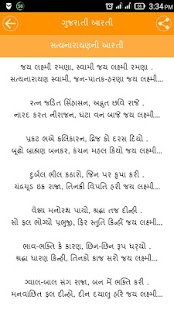 3:34 PM
ગુજરાતી આરતી
સત્યનારાયણની આરતી
જય લક્ષ્મી રમણા, સ્વામી જય લક્ષ્મી રમણા .
સત્યનારાયણ સ્વામી, જન-પાતક-હરણા જય લક્ષ્મી...
રત્ન જડિત સિંહાસન, અદ્ભુત છવિ રાજે .
નારદ કરત નીરાજન, ઘંટા વન બાજે જય લક્ષ્મી...
પ્રકટ ભએ કલિકારન, દ્વિજ કો દરસ દિયો .
બૂઢો બ્રાહ્મણ બનકર, કંચન મહલ કિયો જય લક્ષ્મી....
દુર્બલ ભીલ કઠારો, જિન પર કૃપા કરી .
ચંદ્રચૂડ ઇક રાજા, તિનકી વિપત્તિ હરી જય લક્ષ્મી...
વૈશ્ય મનોરથ પાયો, શ્રદ્ધા તજ દીન્હી .
સો ફલ ભોગ્યો પ્રભુજી, ફિર સ્તુતિ કિન્હીં જય લક્ષ્મી...
ભાવ-ભક્તિ કે કારણ, છિન-છિન રૂપ ધર્યો .
શ્રદ્ધા ધારણ કિન્હી, તિનકો કાજ સરો જય લક્ષ્મી...
ગ્વાલ-બાલ સંગ રાજા, બન મેં ભક્તિ કરી .
મનવાંછિત ફલ દીન્હો, દીન દયાલુ હરિ જય લક્ષ્મી...